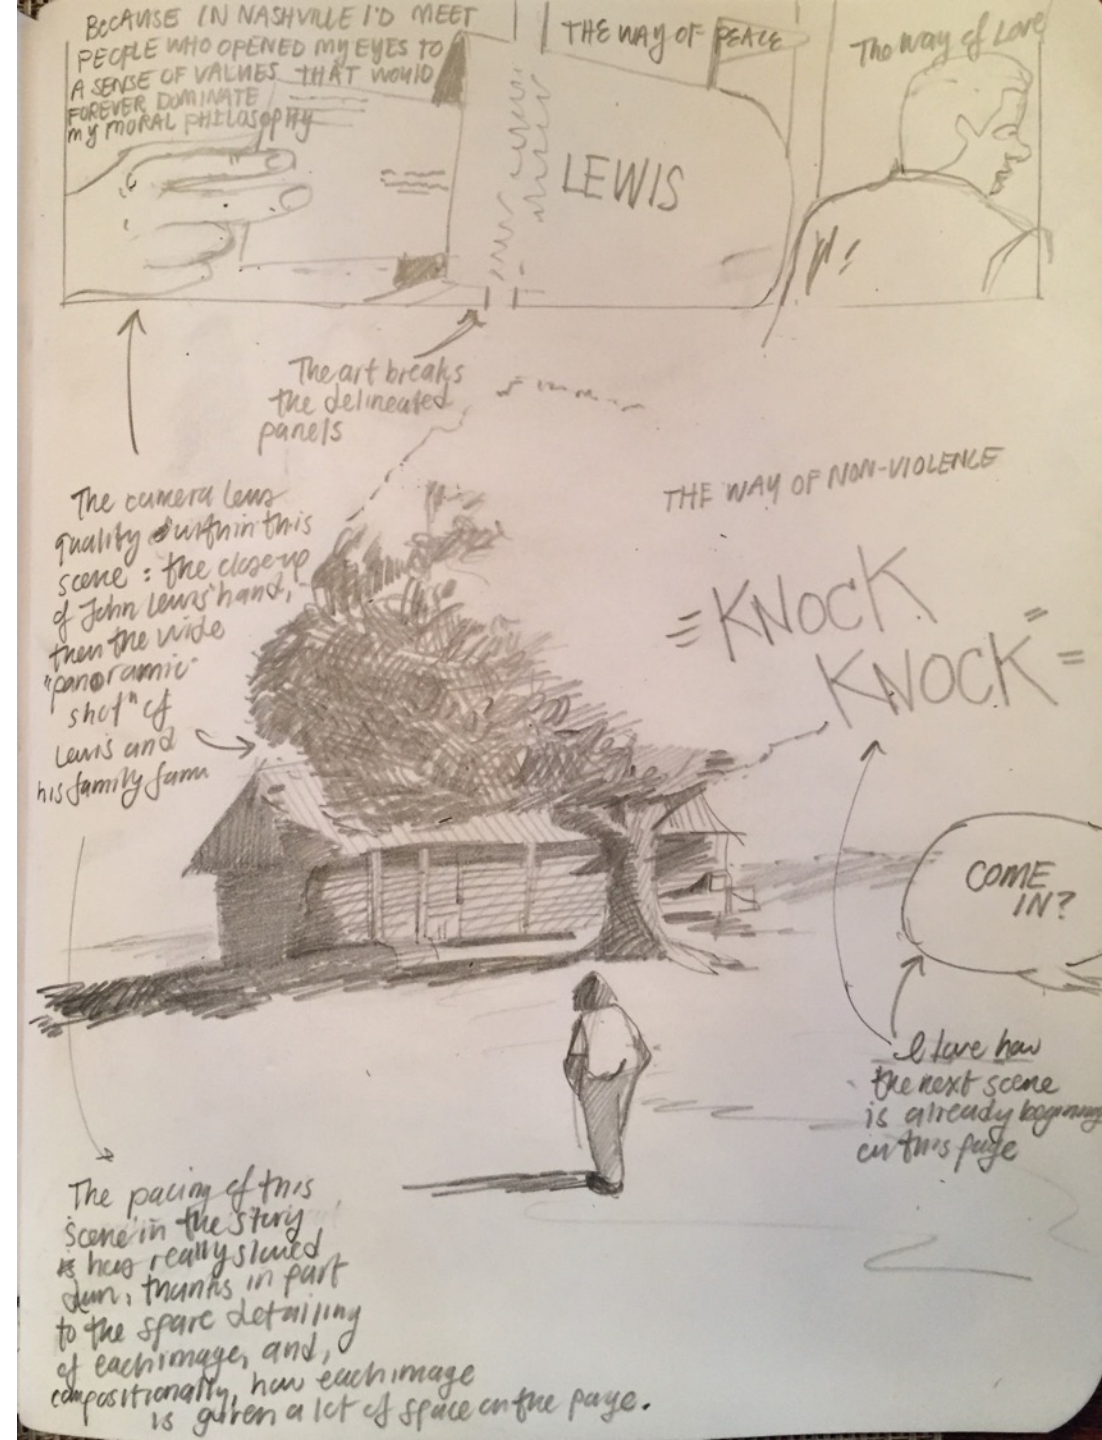 BECAUSE IN NASHVILLE I'D MEET
PEOPLE WHO OPENED MY EYES TO
A SENSE OF VALUES THAT WOULD
FOREVER DOMINATE
MY MORAL PHILOSOPHY
THE WAY OF PEACE
The Way of Love
LEWIS
The art breaks
the delineated
panels
The camera lens
quality within this
scene: the close-up
of John Lewis' hand,
then the wide
"panoramic
shot" of
Lewis and
his family farm
THE WAY OF NON-VIOLENCE
KNOCK
KNOCK
COME
IN?
I love how
the next scene
is already beginning
on this page
The pacing of this
scene in the story
has really slowed
down, thanks in part
to the spare detailing
of each image, and,
compositionally, how each image
is given a lot of space on the page.